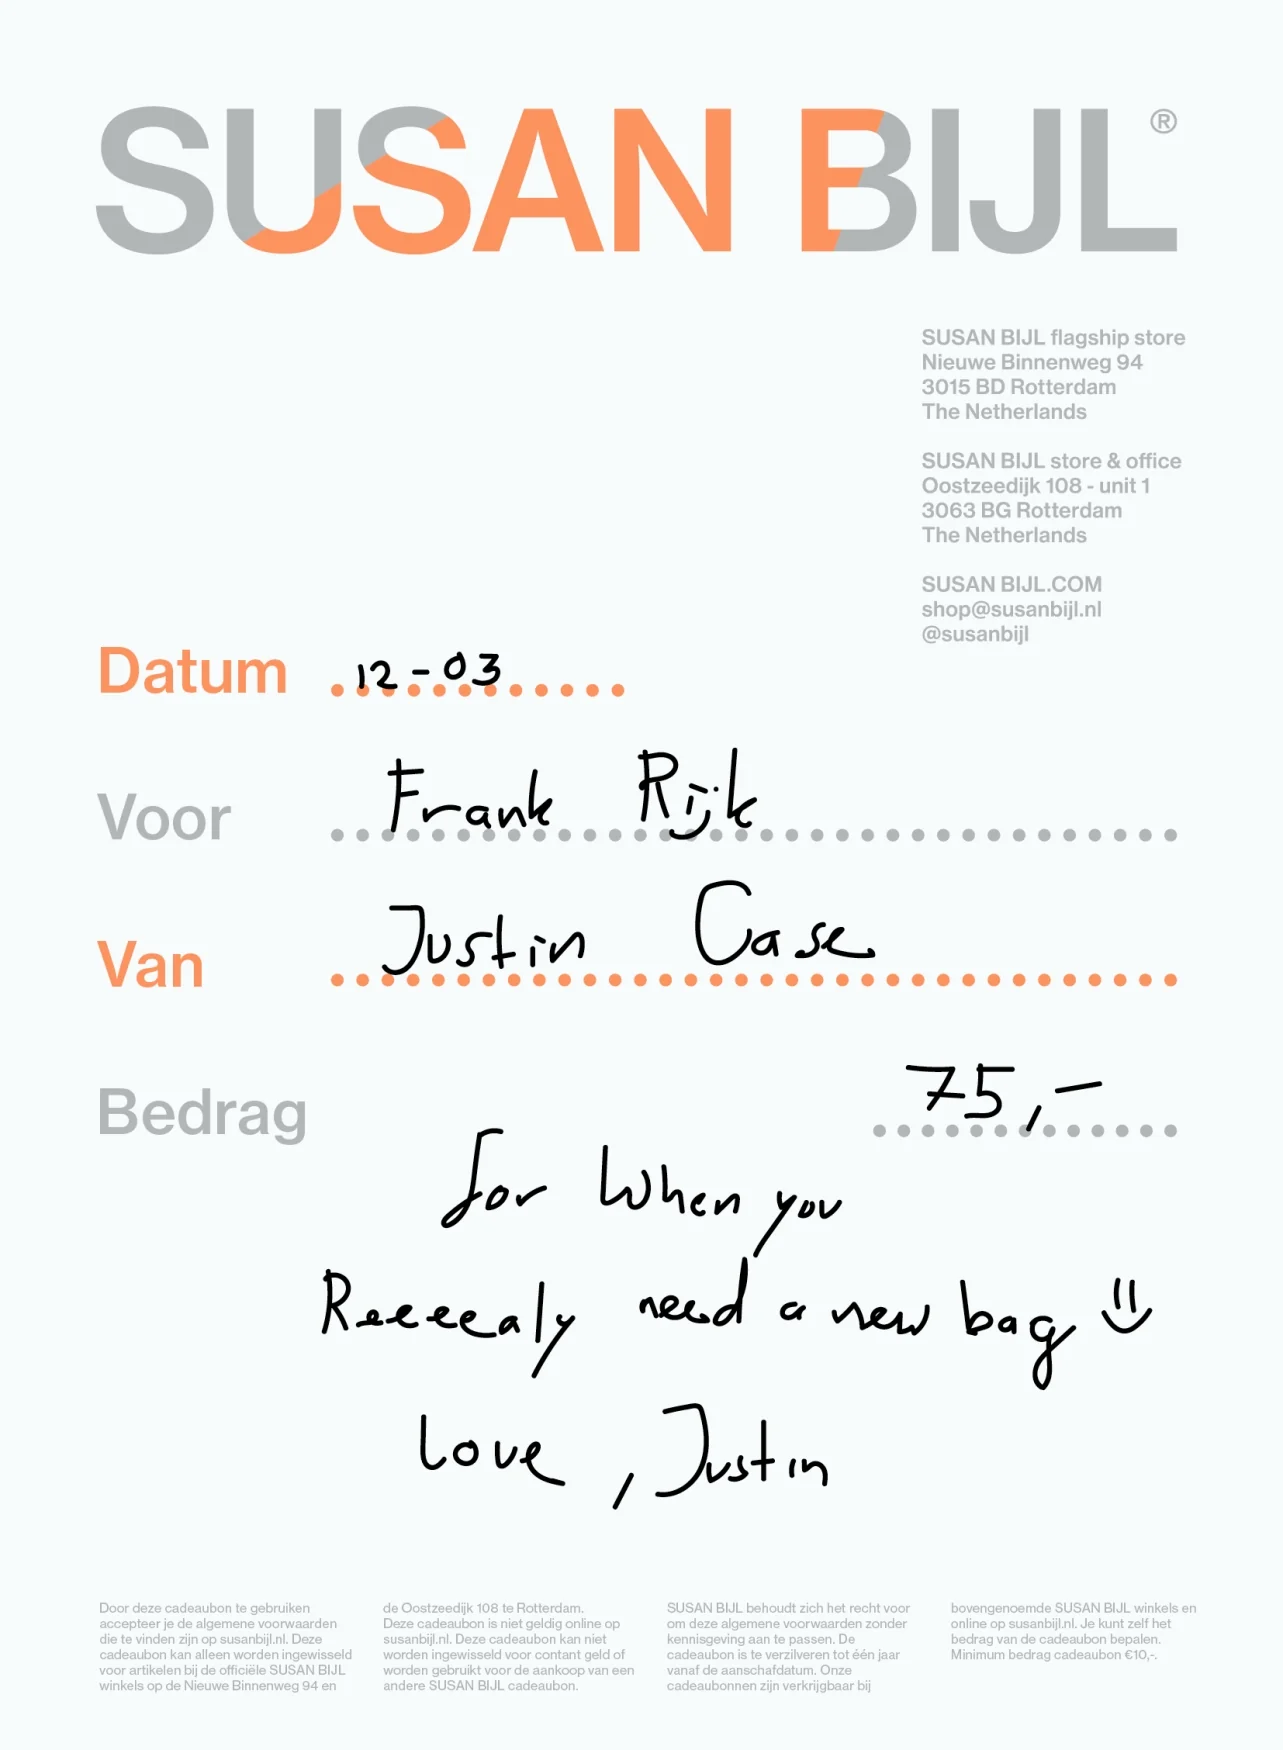 SUSAN BIJL®
SUSAN BIJL flagship store
Nieuwe Binnenweg 94
3015 BD Rotterdam
The Netherlands
SUSAN BIJL store & office
Oostzeedijk 108 - unit 1
3063 BG Rotterdam
The Netherlands
SUSAN BIJL.COM
shop@susanbijl.nl
@susanbijl
Datum 12-03
Voor Frank Rijk
Van Justin Case
Bedrag 75,-
for when you
Reeeealy need a new bag
love, Justin
Door deze cadeaubon te gebruiken
accepteer je de algemene voorwaarden
die te vinden zijn op susanbijl.nl. Deze
cadeaubon kan alleen worden ingewisseld
voor artikelen bij de officiële SUSAN BIJL
winkels op de Nieuwe Binnenweg 94 en
de Oostzeedijk 108 te Rotterdam.
Deze cadeaubon is niet geldig online op
susanbijl.nl. Deze cadeaubon kan niet
worden ingewisseld voor contant geld of
worden gebruikt voor de aankoop van een
andere SUSAN BIJL cadeaubon.
SUSAN BIJL behoudt zich het recht voor
om deze algemene voorwaarden zonder
kennisgeving aan te passen. De
cadeaubon is te verzilveren tot één jaar
vanaf de aanschafdatum. Onze
cadeaubonnen zijn verkrijgbaar bij
bovengenoemde SUSAN BIJL winkels en
online op susanbijl.nl. Je kunt zelf het
bedrag van de cadeaubon bepalen.
Minimum bedrag cadeaubon €10,-.